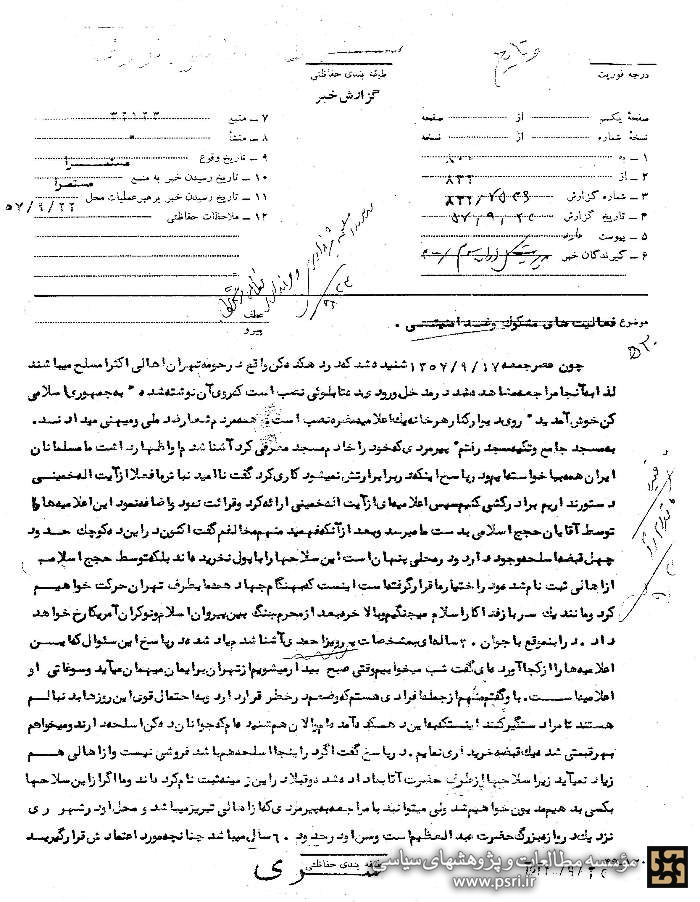 طبقه بندی حفاظتی
گزارش خبر
درجه فوریت
صفحهٔ یکم از صفحه
نسخهٔ شماره از نسخه
۱ – به
۲ – از ۸۳۲
۳ – شماره گزارش
۴ – تاریخ گزارش
۵ – پیوست
۶ – گیرندگان خبر
۷ – منبع ۳۲۱۲۳
۸ – منشأ
۹ – تاریخ وقوع مستمرا
۱۰ – تاریخ رسیدن خبر به منبع مستمرا
۱۱ – تاریخ رسیدن خبر برهبر عملیات محل ۵۷/۹/۲۲
۱۲ – ملاحظات حفاظتی
عطف
پیرو
موضوع فعالیت های مشکوک و ضد امنیتی .
چون عصر جمعه ۱۳۵۷/۹/۱۷ شنیده شد که در دهکده کن واقع در حومه تهران اهالی اکثرا مسلح میباشند
لذا به آنجا مراجعه مشاهده شد در مدخل ورودی ده تابلوئی نصب است که روی آن نوشته شده " به جمهوری اسلامی
کن خوش آمدید " روی دیوار کنار هر خانه یک اعلامیه نصب است همه مردم شعار ضد ملی و میهنی میدادند.
به مسجد جامع و تکیه مسجد رفتم پیرمردی که خود را خادم مسجد معرفی کرد آشنا شدم او اظهار داشت ما مسلمانان
ایران همه بپا خواسته‌ایم و در پاسخ اینکه در برابر ارتش نمیشود کاری کرد گفت نا امید نباش تا فعلا از آیت اله خمینی
دستور نداریم برادر کشی کنیم سپس اعلامیه‌ای از آیت اله خمینی ارائه کرد و قرائت نمود و اضافه نمود این اعلامیه ها را
توسط آقایان حجج اسلامی بدست ما میرسد و بعد از آنکه فهمید منهم مخالفم گفت اکنون در این ده کوچک حدود
چهل قبضه اسلحه وجود دارد و در محلی پنهان است این سلاحها را با پول نخریده‌اند بلکه توسط حجج اسلام
از اهالی ثبت نام شده و در اختیار ما قرار گرفته است اینست که بهنگام جهاد همه بطرف تهران حرکت خواهیم
کرد و مانند یک سرباز فداکار اسلام میجنگیم و بالاخره بعد از محرم جنگ بین پیروان اسلام و نوکران آمریکا رخ خواهد
داد. در اینموقع با جوان ۲۰ ساله‌ای بمشخصات پرویز احمدی آشنا شدم یاد شده در پاسخ این سئوال که این
اعلامیه ها را از کجا آورده‌ای گفت شب میخوابیم وقتی صبح بیدار میشویم از تهران برایمان میهمان میآید و سوغاتی او
اعلامیه است. با و گفتم منهم از جمله افرادی هستم که وضعم در خطر قرار دارد و به احتمال قوی این روزها بدنبالم
هستند تا مرا دستگیر کنند اینست که به این دهکده آمده‌ام و الان هم شنیده‌ام که جوانان ده کن اسلحه دارند و میخواهم
بهر قیمتی شده یک قبضه خریداری نمایم. در پاسخ گفت اگر در اینجا اسلحه هم باشد فروشی نیست و از اهالی هم
زیاد نمیآید زیرا سلاحها از طرف حضرت آقا بما داده شده و قبلا در این زمینه ثبت نام کرده‌اند و ما اگر از این سلاحها
بکسی بدهیم مدیون خواهیم شد ولی میتوانید با مراجعه به پیرمردی که از اهالی تبریز میباشد و محل او در شهر ری
نزدیک دروازه بزرگ حضرت عبدالعظیم است و سن او در حدود ۶۰ سال میباشد چنانچه مورد اعتمادش قرار گیرید
طبقه بندی حفاظتی
سری
مؤسسه مطالعات و پژوهشهای سیاسی
www.psri.ir